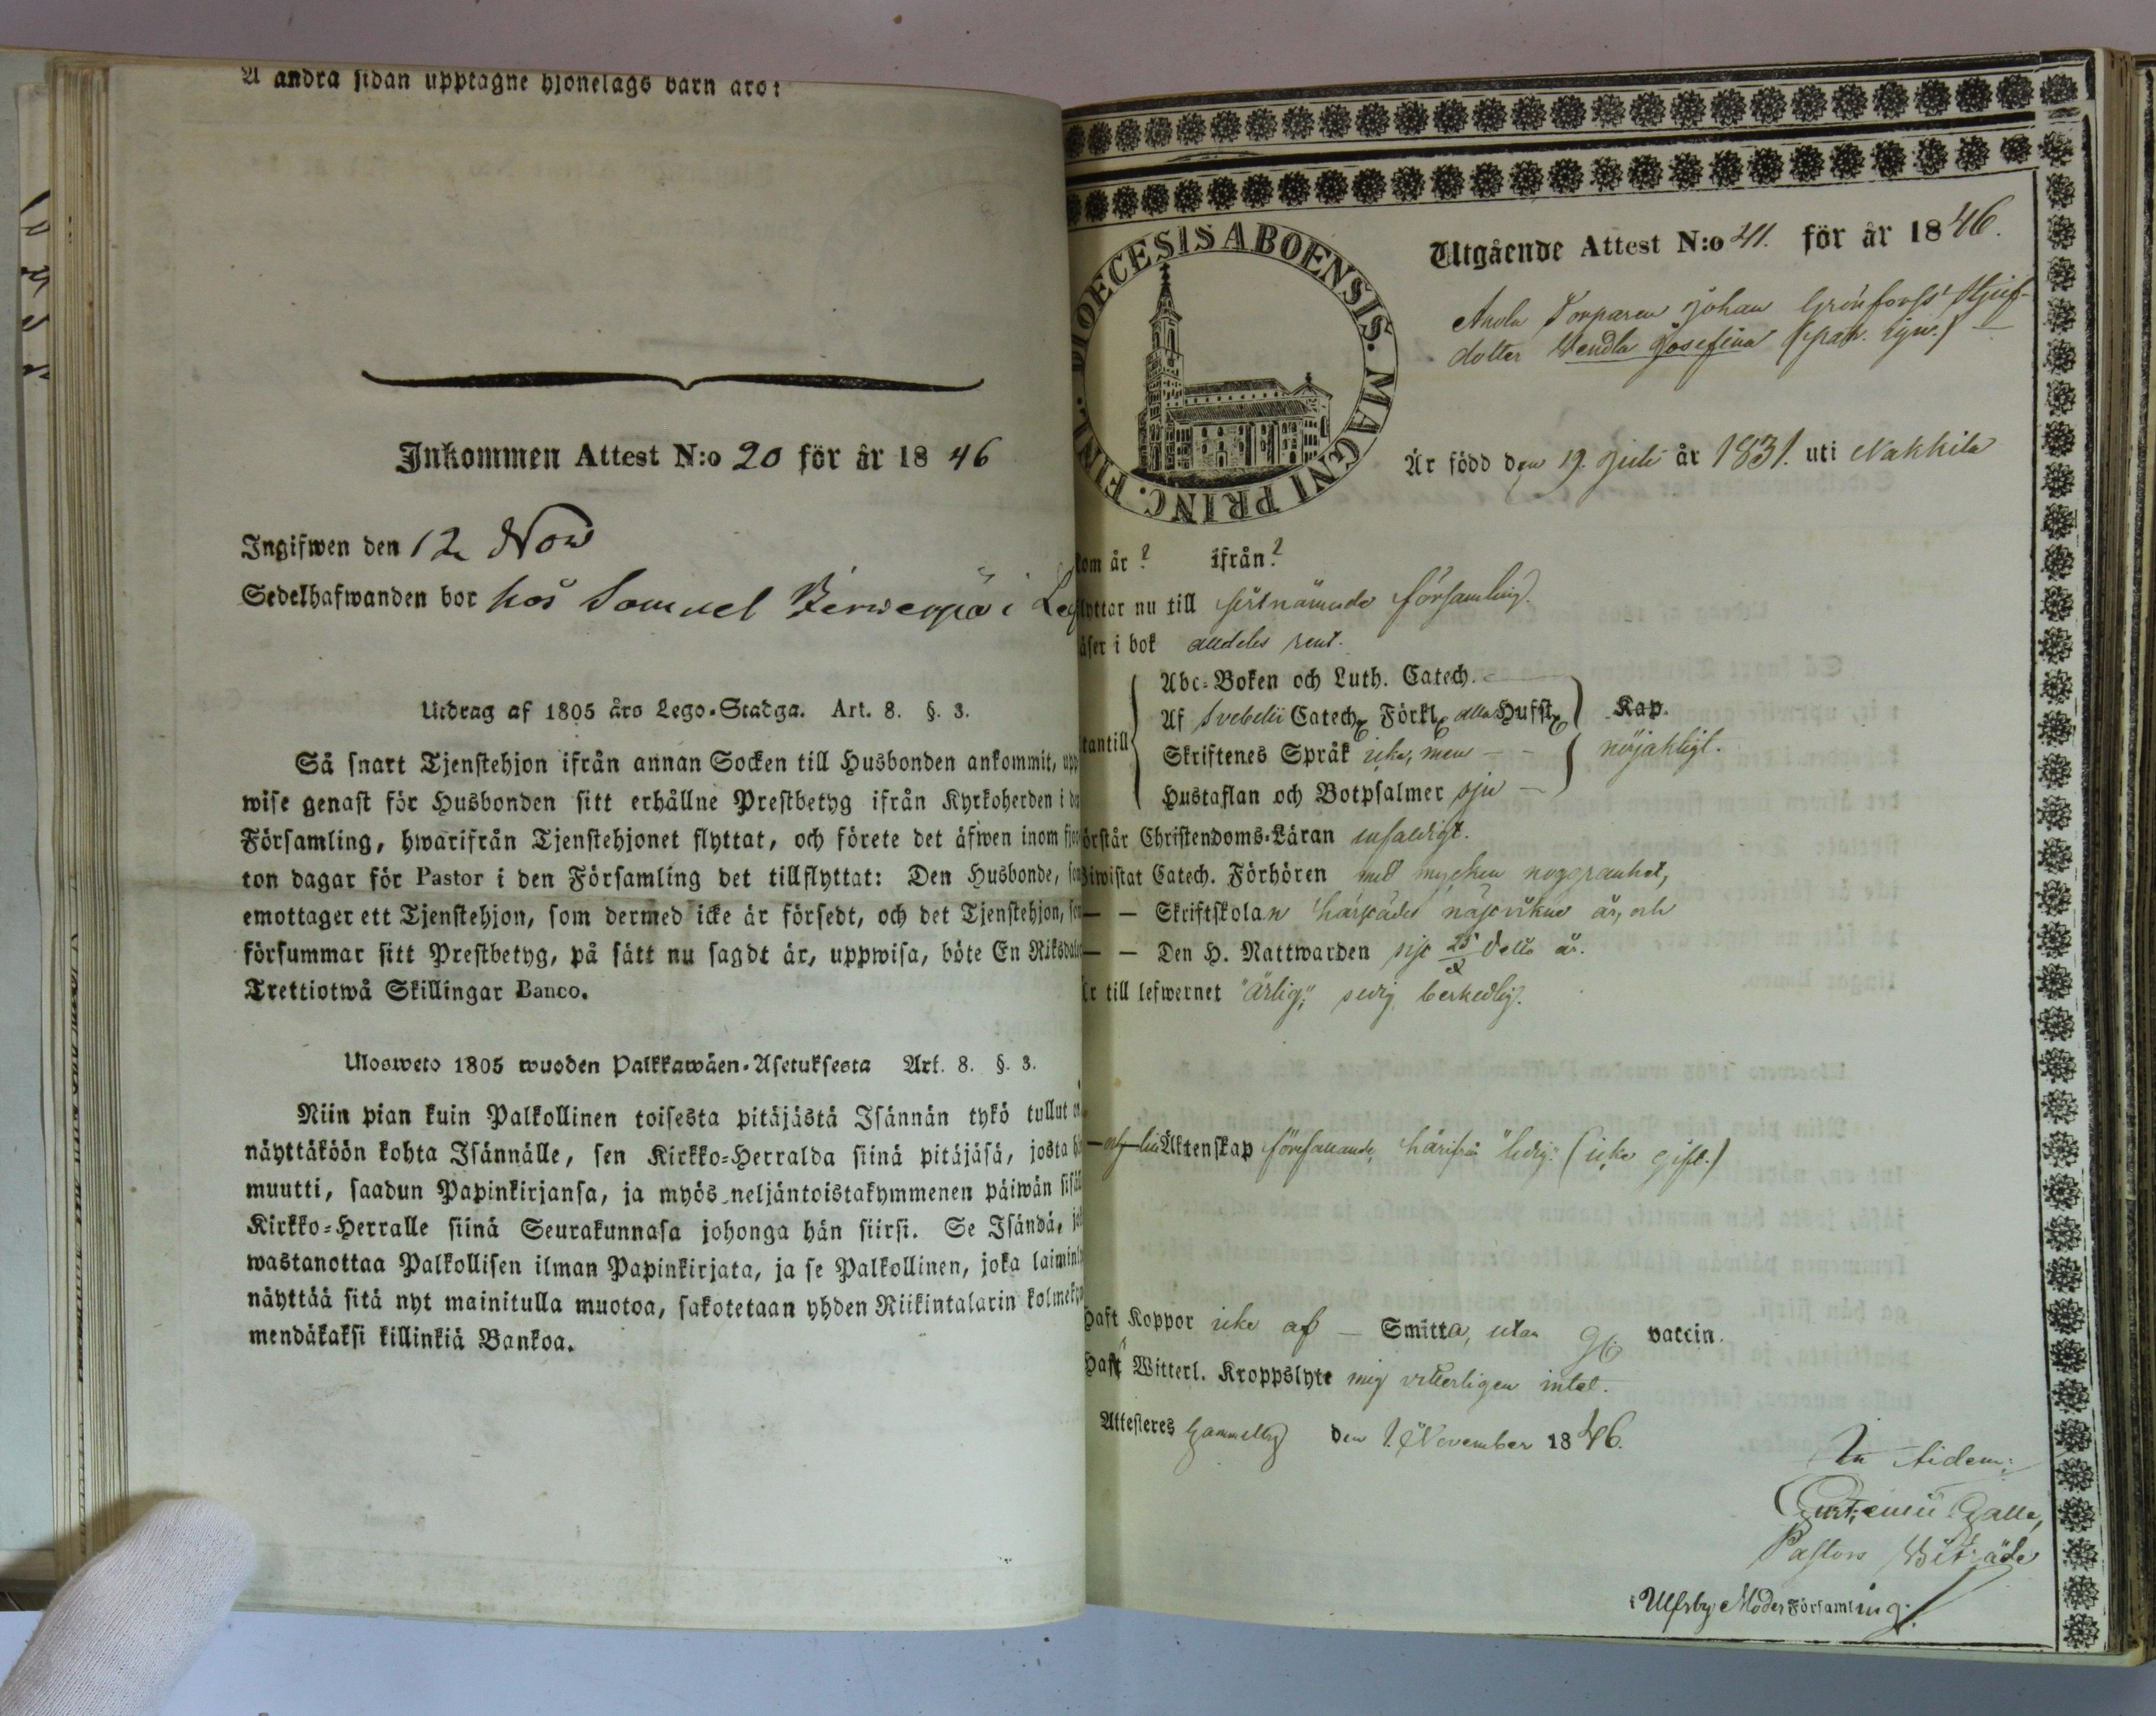 Å andra sidan upptagne hjonelags barn äro:
Inkommen Attest N:o 20 för år 1846
Ingifwen den 12 Nov
Sedelhafwanden bor hos Samuel i
Utdrag af 1805 års Lego-Stadga. Art. 8. §. 3.
Så snart Tjenstehjon ifrån annan Socken till Husbonden ankommit, upp
wise genast för Husbonden sitt erhållne Prestbetyg ifrån Kyrkoherden i
Församling, hwarifrån Tjenstehjonet flyttat, och förete det äfwen inom fjor
ton dagar för Pastor i den Församling det tillflyttat: Den Husbonde, som
emottager ett Tjenstehjon, som dermed icke är försedt, och det Tjenstehjon, som
försummar sitt Prestbetyg, på sätt nu sagdt är, uppwisa, böte En Riksdaler
Trettiotwå Skillingar Banco.
Ulosweto 1805 wuoden Palkkawäen-Asetuksesta Art. 8. §. 3.
Niin pian kuin Palkollinen toisesta pitäjästä Isännän tykö tullut on
näyttäköön kohta Isännälle, sen Kirkko-Herralda siinä pitäjäsä, josta
muutti, saadun Papinkirjansa, ja myös neljäntoistakymmenen päiwän
Kirkko-Herralle siinä Seurakunnasa johonga hän siirsi. Se Isändä,
wastanottaa Palkollisen ilman Papinkirjata, ja se Palkollinen, joka laimin
näyttää sitä nyt mainitulla muotoa, sakotetaan yhden Riikintalarin kolmeky
mendäkaksi killinkiä Bankoa.
DIOECESIS ABOENSIS. MAGNI PRINC. FINL.
Utgående Attest N:o 41. för år 1846.
Torparen Johan Grönfors' Stjuf-
dotter Wendla Josefina
Är född den 19. Juli år 1831. uti Nakkila
kom år ? ifrån ?
flyttar nu till sistnämnde församling.
läser i bok alldeles rent.
Abc-Boken och Luth. Catech.
Af Svebelii Catech. Förkl. alla Hufst. Kap.
utantill Skriftenes Språk icke, men nöjaktligt.
Hustaflan och Botpsalmer sju
förstår Christendoms-Läran enfaldigt.
Biwistat Catech. Förhören med mycken noggranhet,
— — Skriftskolan härstädes näst vikne år, och
— — Den H. Nattwarden sist 25 detta år.
Är till lefwernet "ärlig", sedig, beskedlig.
Äktenskap förefallande, härifrån "ledig" (icke gift.)
Haft Koppor icke af — Smitta, utan vaccin.
Haft Witterl. Kroppslyte mig vitterligen intet.
Attesteres Gammelby den 1. November 1846.
In fidem:
Pastors Biträde
i Ulfsby Moder Församling.